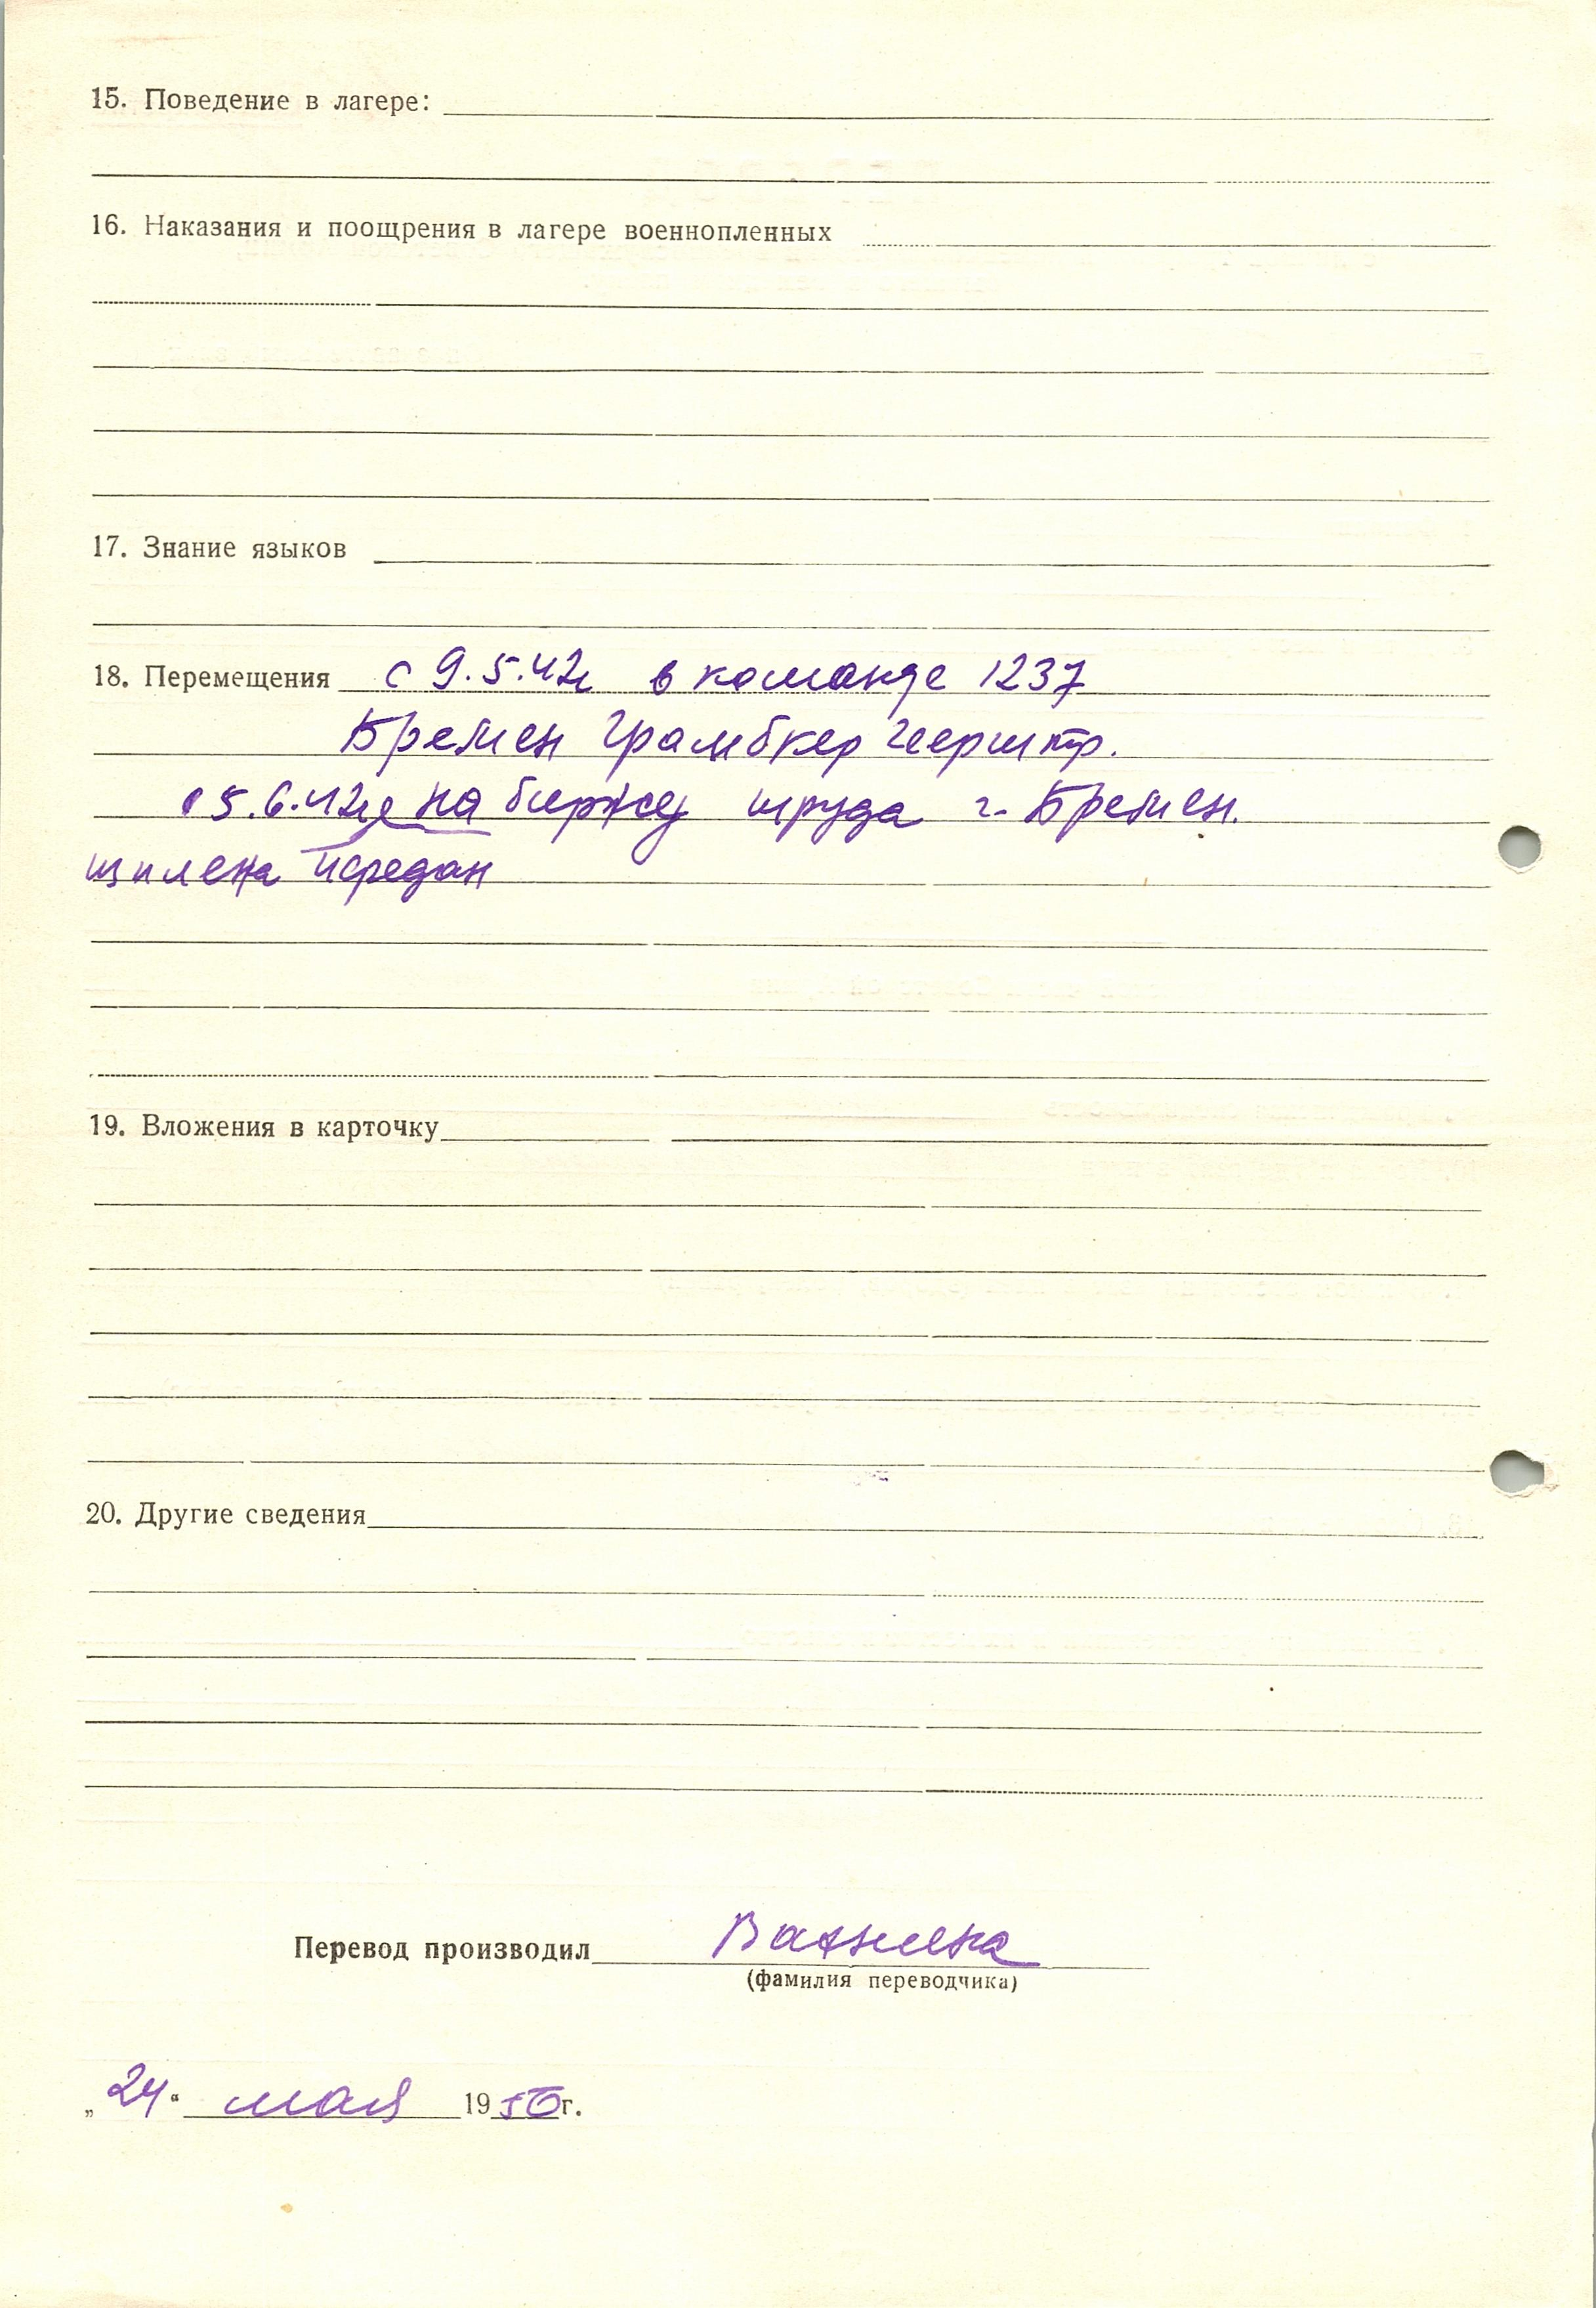 15. Поведение в лагере:
16. Наказания и поощрения в лагере военнопленных
17. Знание языков
18. Перемещения с 9.5.42г в команде 1237
Бремен Грамбкер Геерштр.
5.6.42г на биржу труда г. Бремен.
из плена передан
19. Вложения в карточку
20. Другие сведения
Перевод производил
(фамилия переводчика)
„24“ мая 1950г.